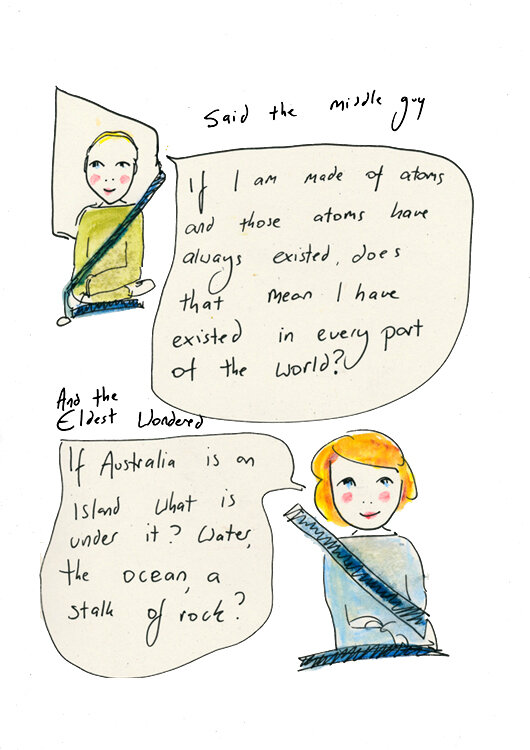 Said the middle guy
If I am made of atoms
and those atoms have
always existed, does
that mean I have
existed in every part
of the world?
And the
Eldest Wondered
If Australia is an
Island what is
under it? Water,
the ocean, a
stalk of rock?